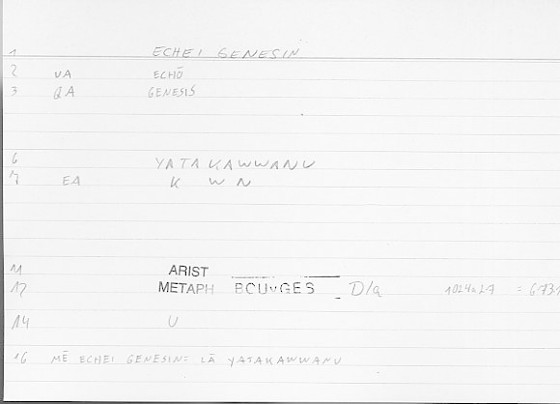 1 ECHEI GENESIN
2 VA ECHŌ
3 QA GENESIS
6 YATAKAWWANU
7 EA K W N
11 ARIST
12 METAPH BOUYGES D/a 1024a27 = 673
14 U
16 MĒ ECHEI GENESIN = LĀ YATAKAWWANU